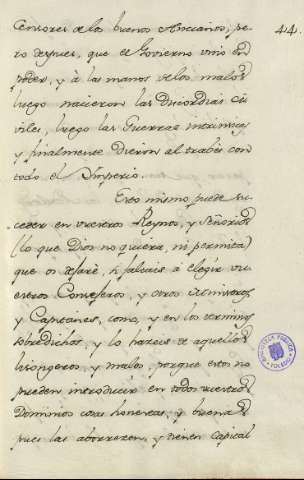 44.
Censores de los buenos Ancianos, pe-
ro despues, que el Govierno vino en
poder, y à las manos de los malos
luego nacieron las Discordias Ci-
viles, luego las Guerras intrinsicas
y finalmente dieron al trabés con
todo el Imperio.
Esto mismo puede su-
ceder en vuestros Reynos, y Señorios
(lo que Dios no quiera, ni permita)
que os si faltais à elegir vu-
estros Consejeros, y otros Ministros
y Capitanes, como, y en los terminos
sobredichos, y lo haceis de aquellos
lisongeros, y malos, porque estos no
pueden introducir en todos vuestros
Dominios cosas honestas, y buenas
pues las aborrezen, y tienen capital
BIBLIOTECA PUBLICA
TOLEDO